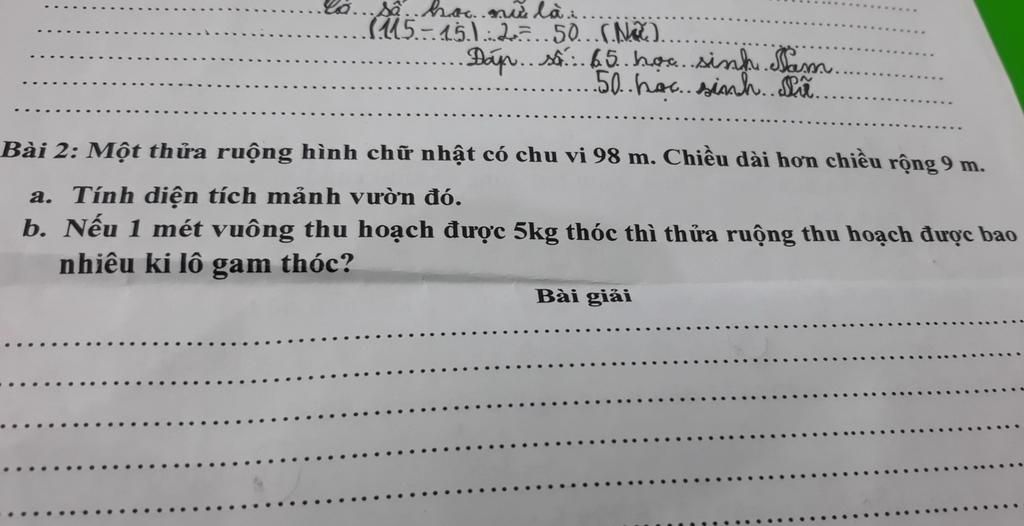 là số học nữ là:
(115 - 15) : 2 = 50 (Nữ)
Đáp số: 65 học sinh Nam
50 học sinh Nữ
Bài 2: Một thửa ruộng hình chữ nhật có chu vi 98 m. Chiều dài hơn chiều rộng 9 m.
a. Tính diện tích mảnh vườn đó.
b. Nếu 1 mét vuông thu hoạch được 5kg thóc thì thửa ruộng thu hoạch được bao
nhiêu ki lô gam thóc?
Bài giải